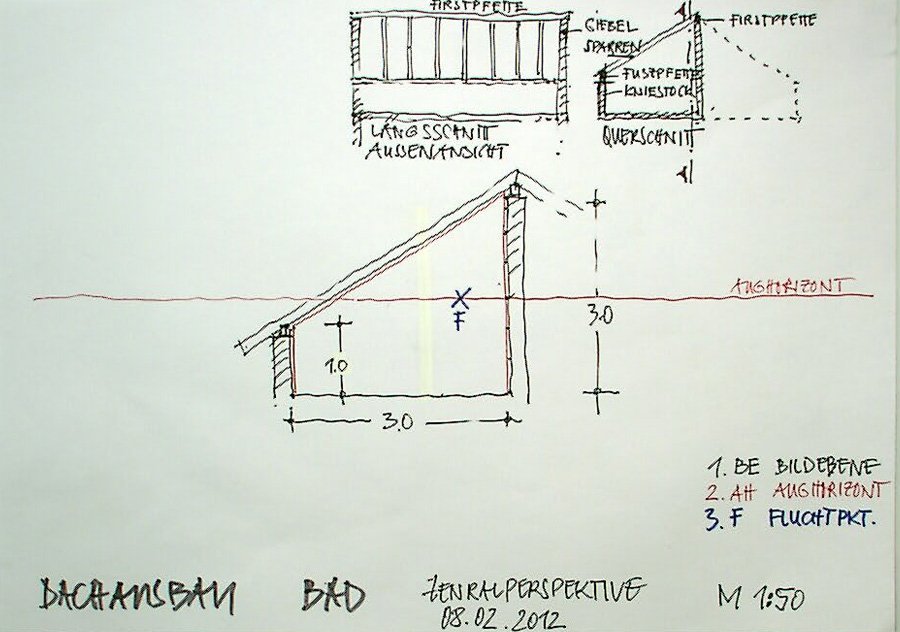 FIRSTPFETTE
GIEBEL
SPARREN
FIRSTPFETTE
FUSZPFETTE
KNIESTOCK
LÄNGSSCHNITT
AUSSENANSICHT
QUERSCHNITT
AUGHORIZONT
F
3.0
1.0
3.0
1. BE BILDEBENE
2. AH AUGHORIZONT
3. F FLUCHTPKT.
DACHAUSBAU BAD ZENRALPERSPEKTIVE M 1:50
08.02.2012